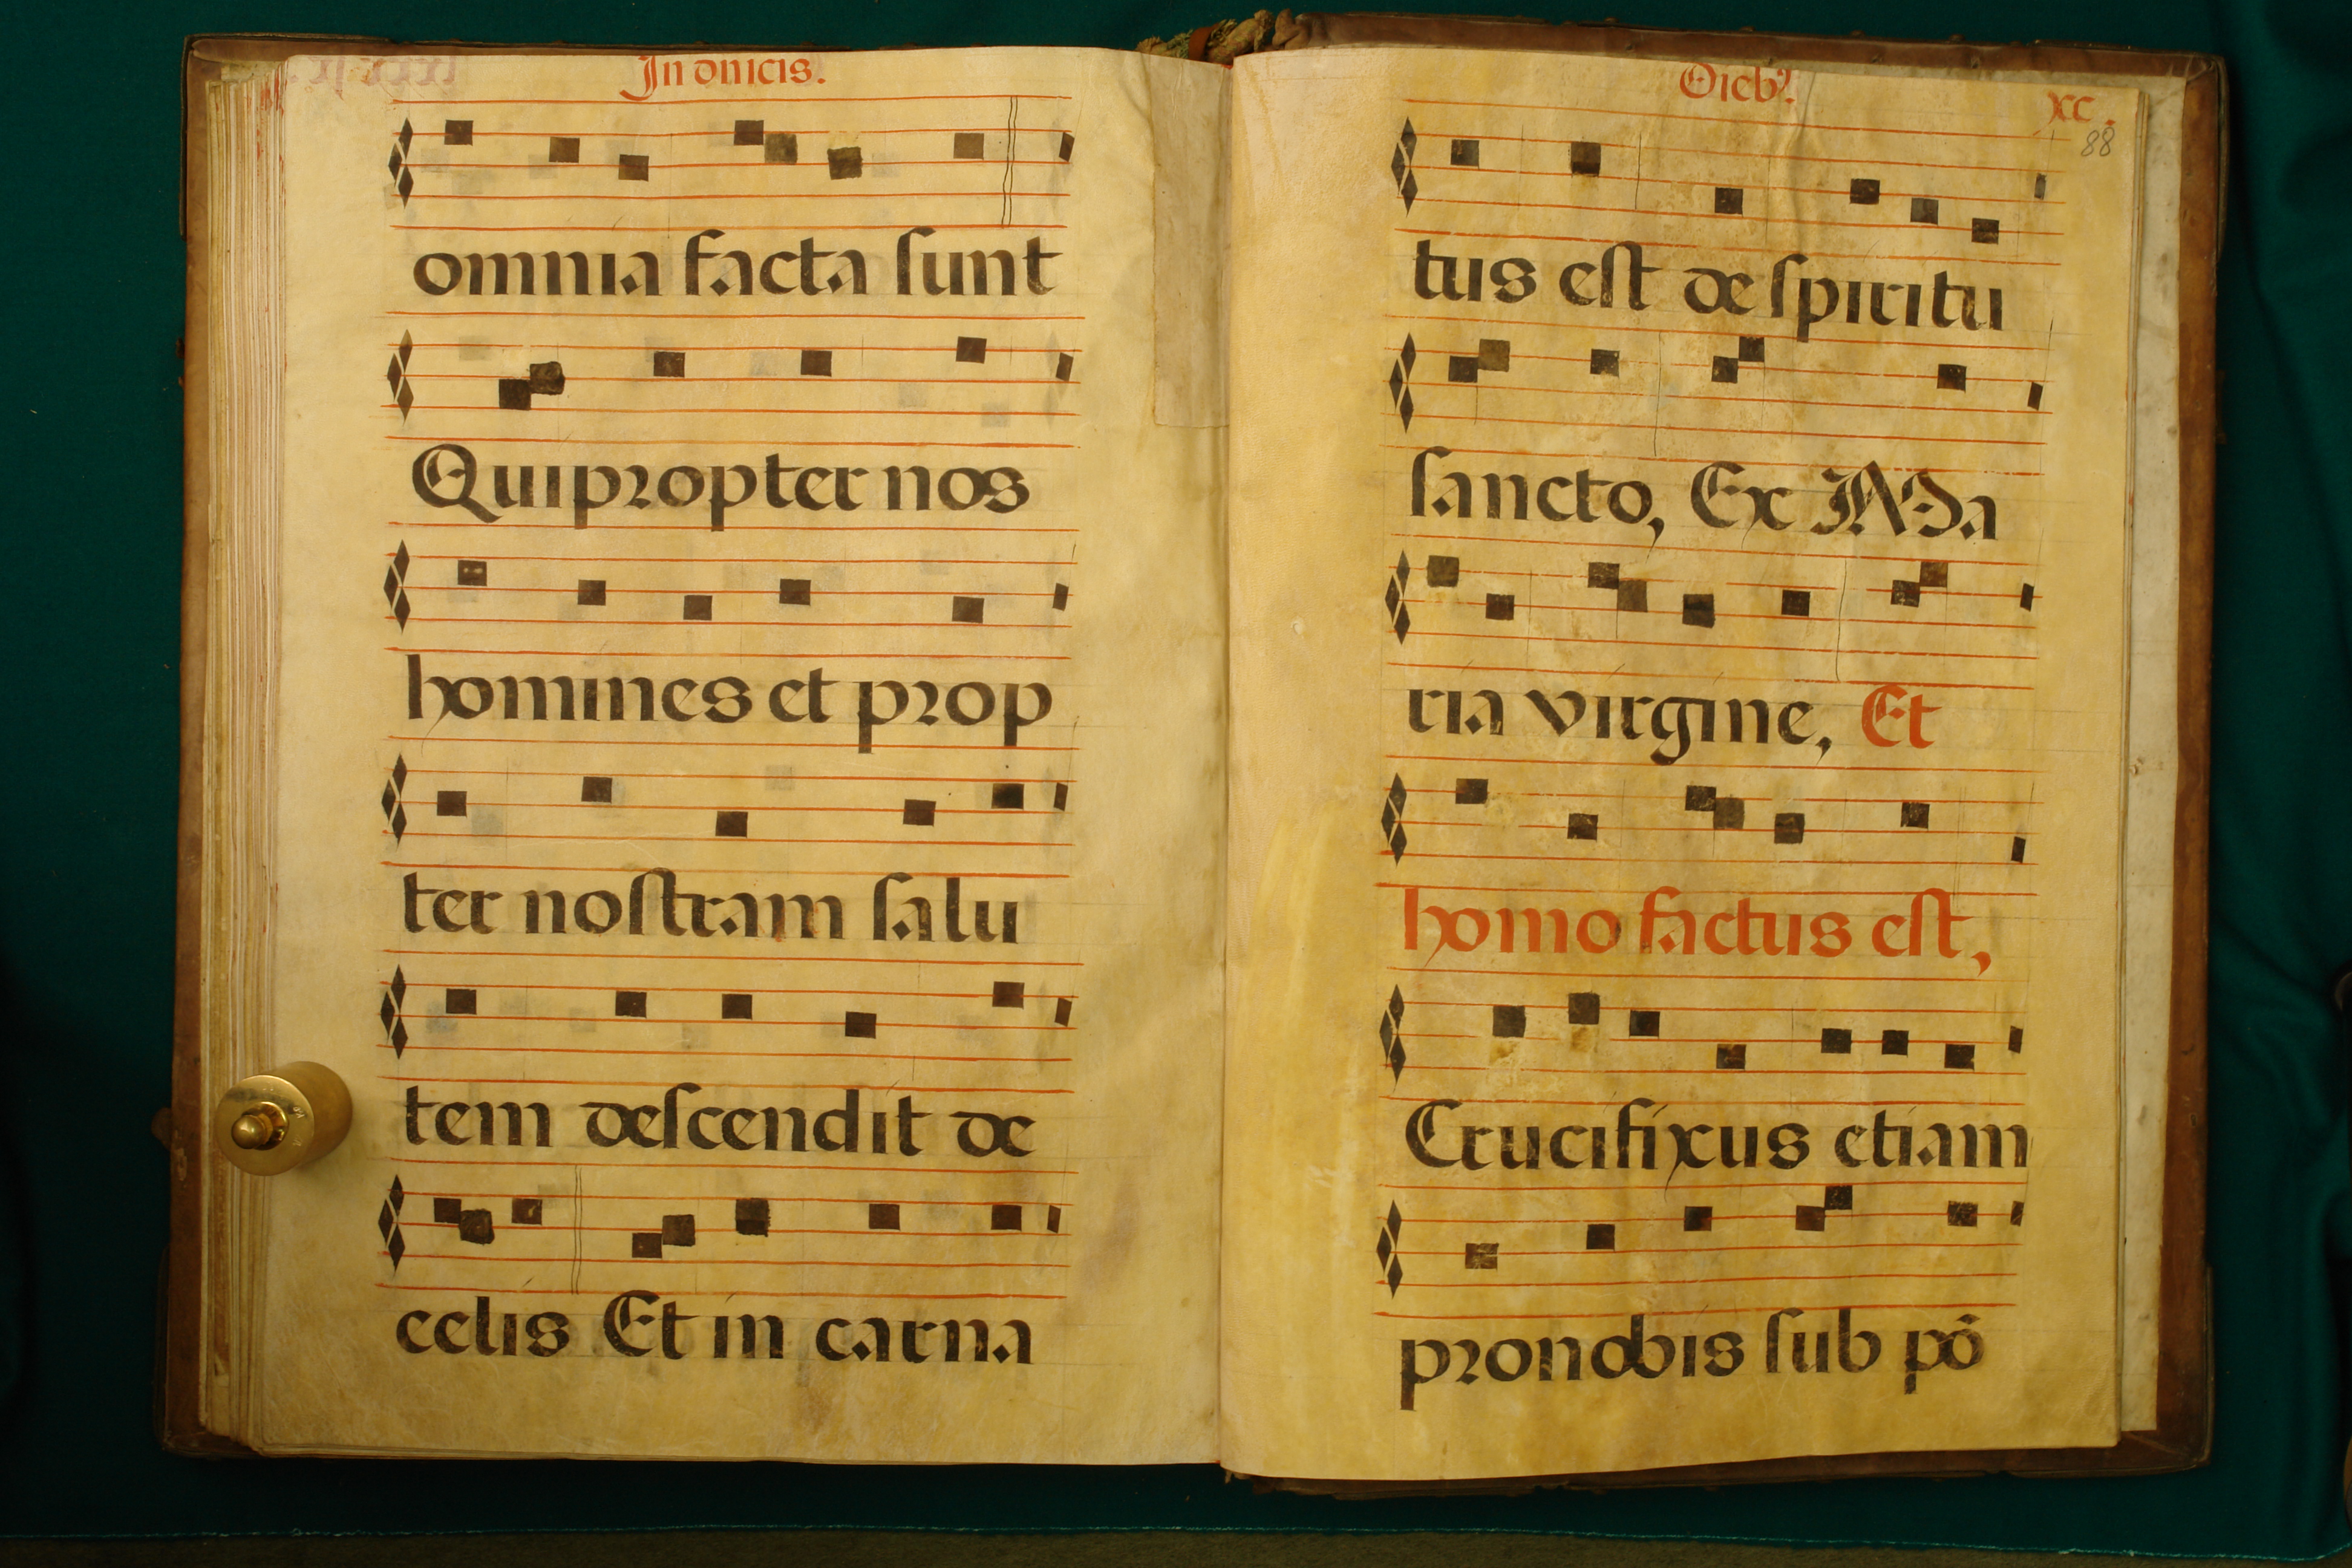 In dnicis.
omnia facta sunt
Qui propter nos
homines et prop
ter nostram salu
tem descendit de
celis Et in carna
Dieb9.
xc.
88
tus est de spiritu
sancto, Ex Ma
ria virgine, Et
homo factus est,
Crucifixus etiam
pro nobis sub põ